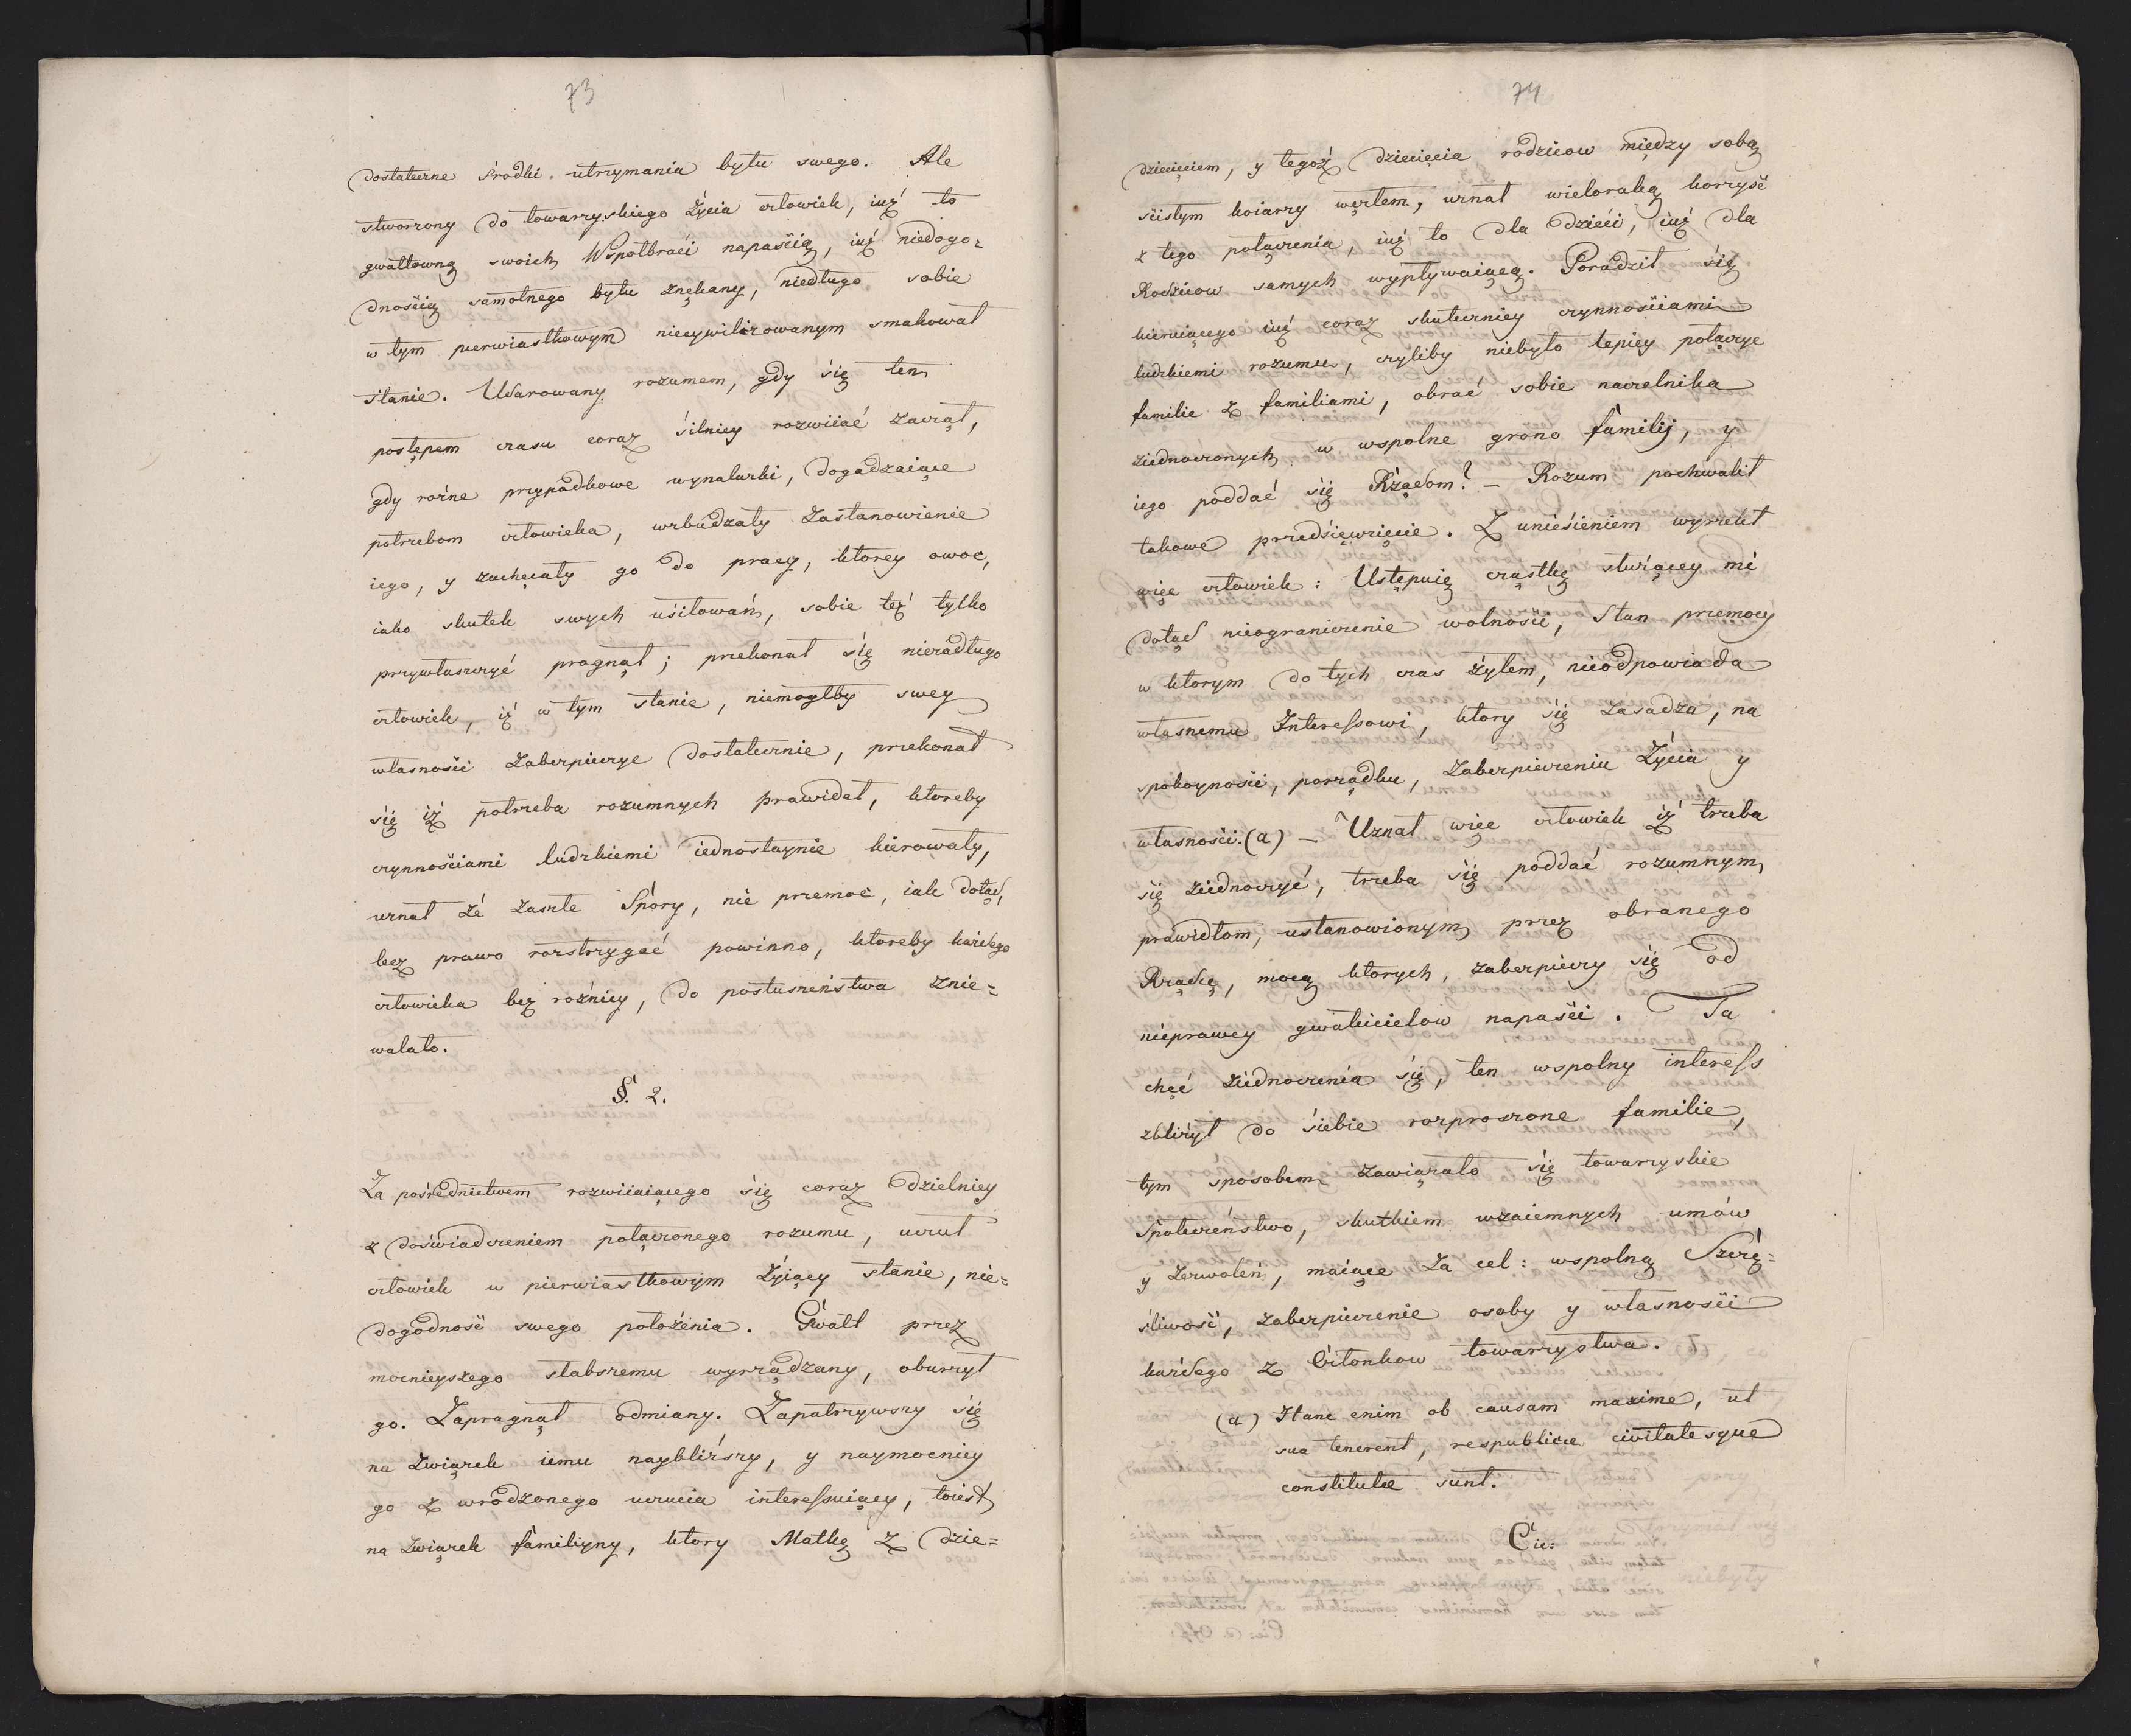 73
dostateczne środki utrzymania bytu swego. Ale
stworzony do towarzyskiego życia człowiek, iuż to
gwałtowną swoich Współbraci napaścią, iuż niedogo=
dnością samotnego bytu znękany, niedługo sobie
w tym pierwiastkowym niecywilizowanym smakował
stanie. Udarowany rozumem, gdy się ten
postępem czasu coraz silniey rozwiiać zaczął,
gdy rożne przypadkowe wynalazki, dogadzaiące
potrzebom człowieka, wzbudzały zastanowienie
iego, y zachęcały go do pracy, ktorey owoc,
iako skutek swych usiłowań, sobie też tylko
przywłaszczyć pragnął; przekonał się niezadługo
człowiek, iż w tym stanie, niemogłby swey
własności zabezpieczyc dostatecznie, przekonał
się iż potrzeba rozumnych prawideł, ktoreby
czynnościami ludzkiemi iednostaynie kierowały,
uznał że zaszłe Spory, nie przemoc, iak dotąd,
lecz prawo rozstrzygać powinno, ktoreby każdego
człowieka bez rożnicy, do posłuszeństwa znie=
walało.
§. 2.
Za pośrednictwem rozwiiaiącego się coraz dzielniey
z doświadczeniem połączonego rozumu, uczuł
człowiek w pierwiastkowym żyiący stanie, nie=
dogodność swego położenia. Gwałt przez
mocnieyszego słabszemu wyrządzany, oburzył
go. Zapragnął odmiany. Zapatrzywszy się
na związek iemu naybliższy, y naymocniey
go z wrodzonego uczucia interessuiący, toiest
na związek familiyny, ktory Matkę z dzie=
74
dziecięciem, y tegoż dziecięcia rodzicow między sobą
ścisłym koiarzy węzłem, uznał wieloraką korzyść
z tego połączenia, iuż to dla dzieci, iuż dla
Rodzicow samych wypływaiącą. Poradził się
kieruiącego iuż coraz skuteczniey czynnościami
ludzkiemi rozumu, czyliby niebyło lepiey połączyc
familie z familiami, obrać sobie naczelnika
ziednoczonych w wspolne grono familij, y
iego poddać się Rządom? – Rozum pochwalił
takowe przedsięwzięcie. Z uniesieniem wyrzekł
więc człowiek: Ustępuię cząstkę służącey mi
dotąd nieograniczenie wolności, Stan przemocy
w ktorym do tych czas żyłem, nieodpowiada
własnemu Interessowi, ktory się zasadza, na
spokoyności, porządku, zabezpieczeniu Życia y
własności. (a) – Uznał więc człowiek iż trzeba
się ziednoczyć, trzeba się poddać rozumnym
prawidłom, ustanowionym przez obranego
Rządcę, mocą ktorych, zabezpieczy się od
nieprawey gwałcicielow napaści. Ta
chęć ziednoczenia się, ten wspolny interess
zbliżył do siebie rozproszone familie,
tym sposobem zawiązało się towarzyskie
Społeczeństwo, skutkiem wzaiemnych umów
y zezwoleń, maiące za cel: wspolną Szczę=
śliwość, zabezpieczenie osoby y własności
każdego z Członkow towarzystwa.
(a) Hanc enim ob causam maxime, ut
sua tenerent, respublicae civitatesque
constitutae sunt.
Cic: